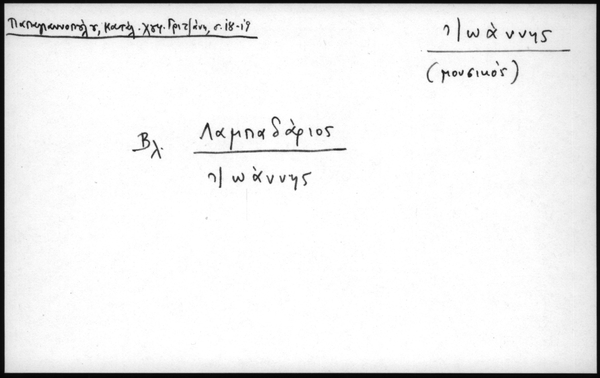 Παπαγιαννοπούλου, Κατάλ. χφ. Γριτζάνη, σ. 18-19
Ἰωάννης
(μουσικός)
Βλ. Λαμπαδάριος
Ἰωάννης